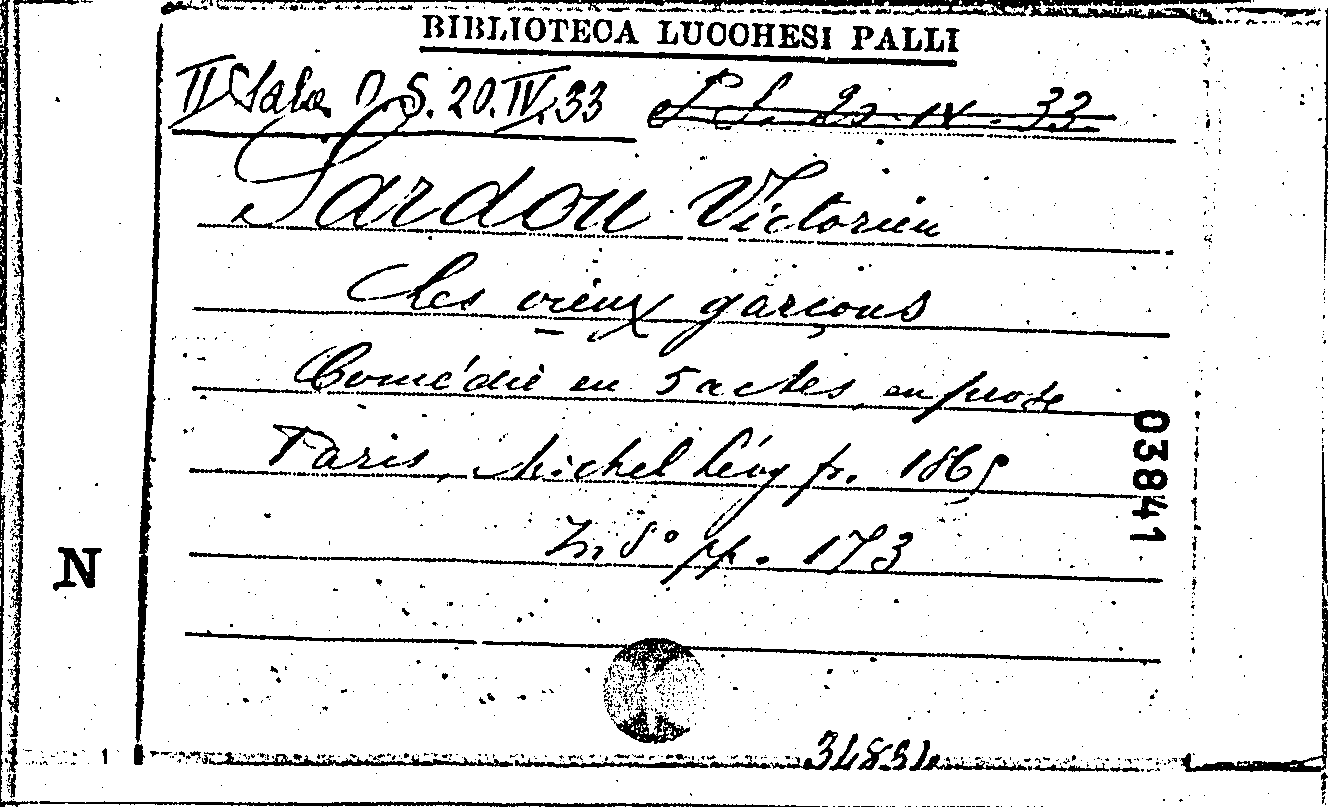 BIBLIOTECA LUCCHESI PALLI
II Sala D. S. 20. IV. 33 S. S. 20 IV. 33
Sardou Victorien
Les vieux garçons
Comédie en 5 actes, en prose
Paris, Michel Lévy fr. 1865
In 8° pp. 173
03841
N
1